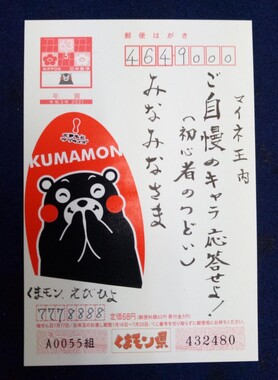 郵便はがき
4649000
NIPPON
年賀
マイネ王内
ご自慢のキャラ応答せよ!
(初心者のつどい)
みなみなさま
KUMAMON
くまモン、えびひよ
7778888
定価68円
A0055組
くまモン県
432480